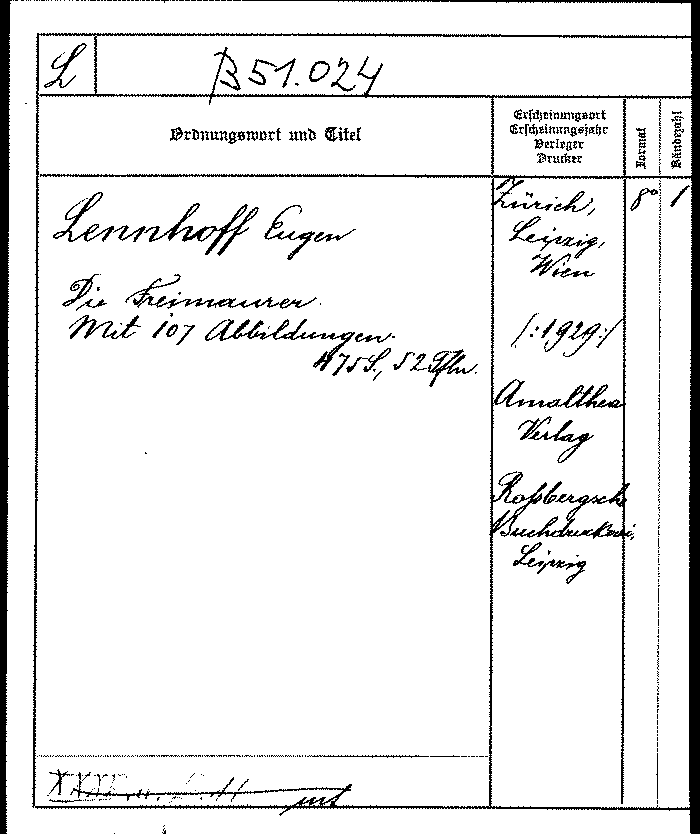 L
B 51.024
Ordnungswort und Titel
Erscheinungsort
Erscheinungsjahr
Verleger
Drucker
Format
Bändezahl
Lennhoff Eugen
Die Freimaurer.
Mit 107 Abbildungen.
475 S., 52 Tfln.
Zürich,
Leipzig,
Wien
/:1929:/
Amalthea
Verlag
Roßbergsche
Buchdruckerei,
Leipzig
8°
1